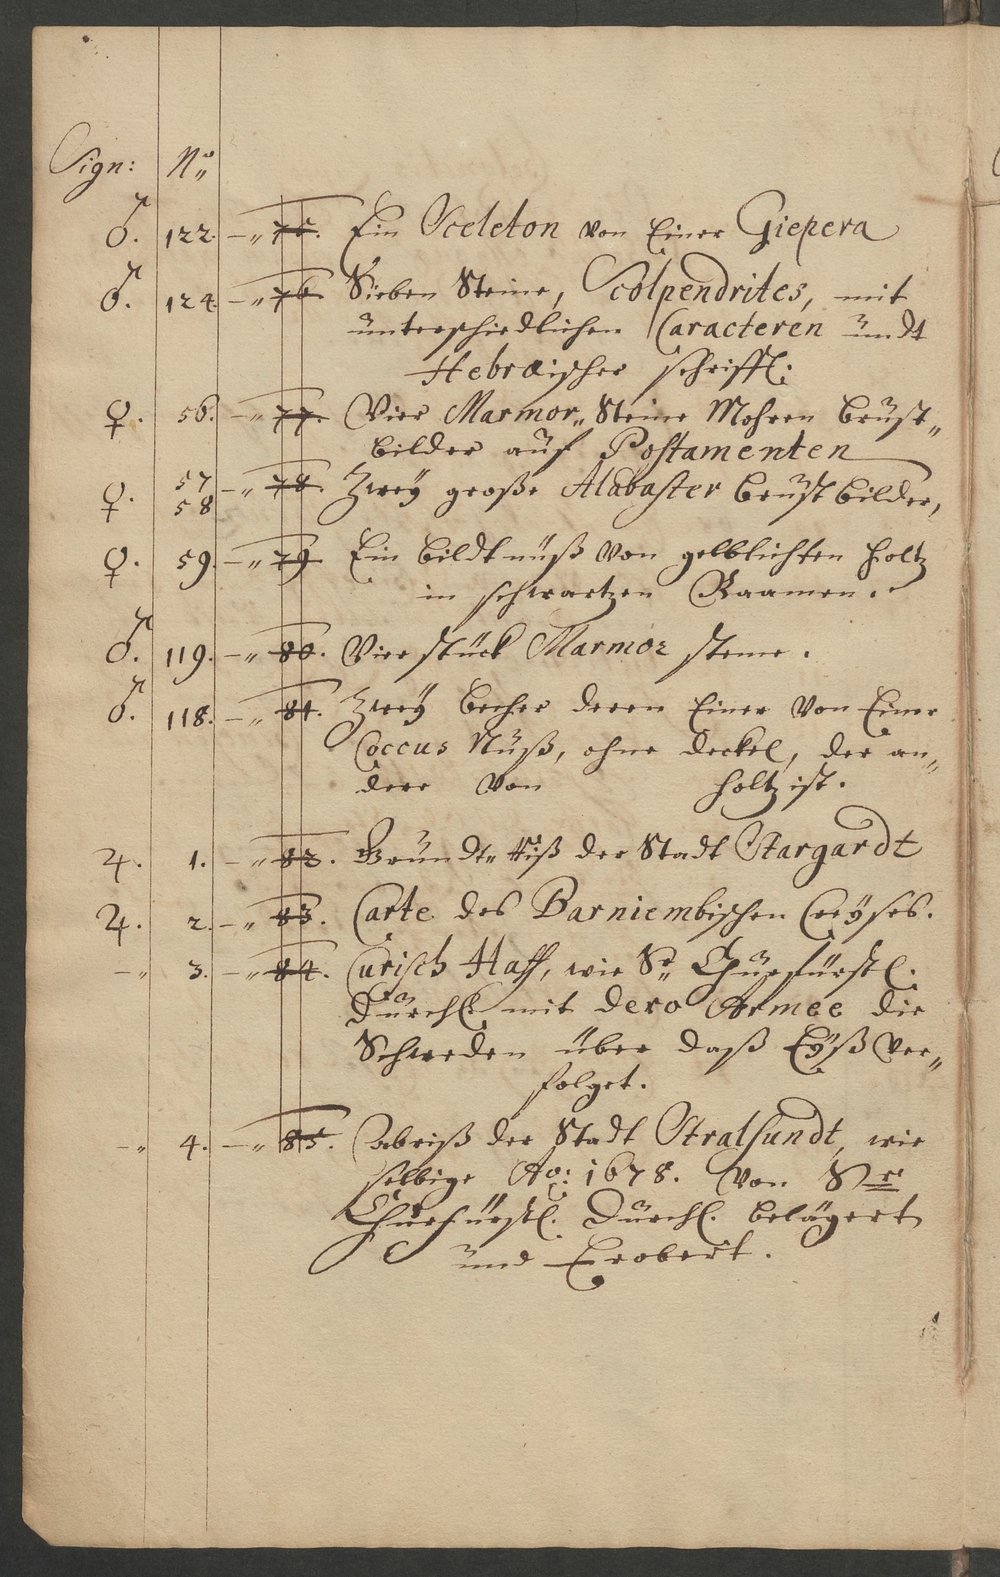 Sign: No
♂. 122. -" 75. Ein Sceleton von Einer Giepera
♂. 124. -" 76. Sieben Steine, Scolpendrites, mit
unterschiedlichen Caracteren undt
Hebræischer schrifft.
♀. 56. -" 77. Vier Marmor„ Steine Mohren brust„
bilder auf Postamenten
♀. 57 58 -" 78. Zweÿ große Alabaster brustbilder,
♀. 59. -" 79. Ein bildtnüß von gelblichten holtz
in schwartzen Raamen.
♂. 119. -" 80. Vier stück Marmor steine.
♂. 118. -" 81. Zweÿ becher deren Einer von Einer
Coccus Nuß, ohne deckel, der an„
dere von holtz ist.
♃. 1. -" 82. Grundt„ Riß der Stadt Stargardt
♃. 2. -" 83. Carte des Barniembischen Creÿses.
-" 3. -" 84. Curisch Haff, wie Sr Churfürstl.
Durchl. mit dero Armee die
Schweden über daß Eÿß ver„
folget.
-" 4. -" 85. Abriß der Stadt Stralsundt, wie
selbige Ao: 1678. von Sr
Churfürstl. Durchl. belägert
und Erobert.